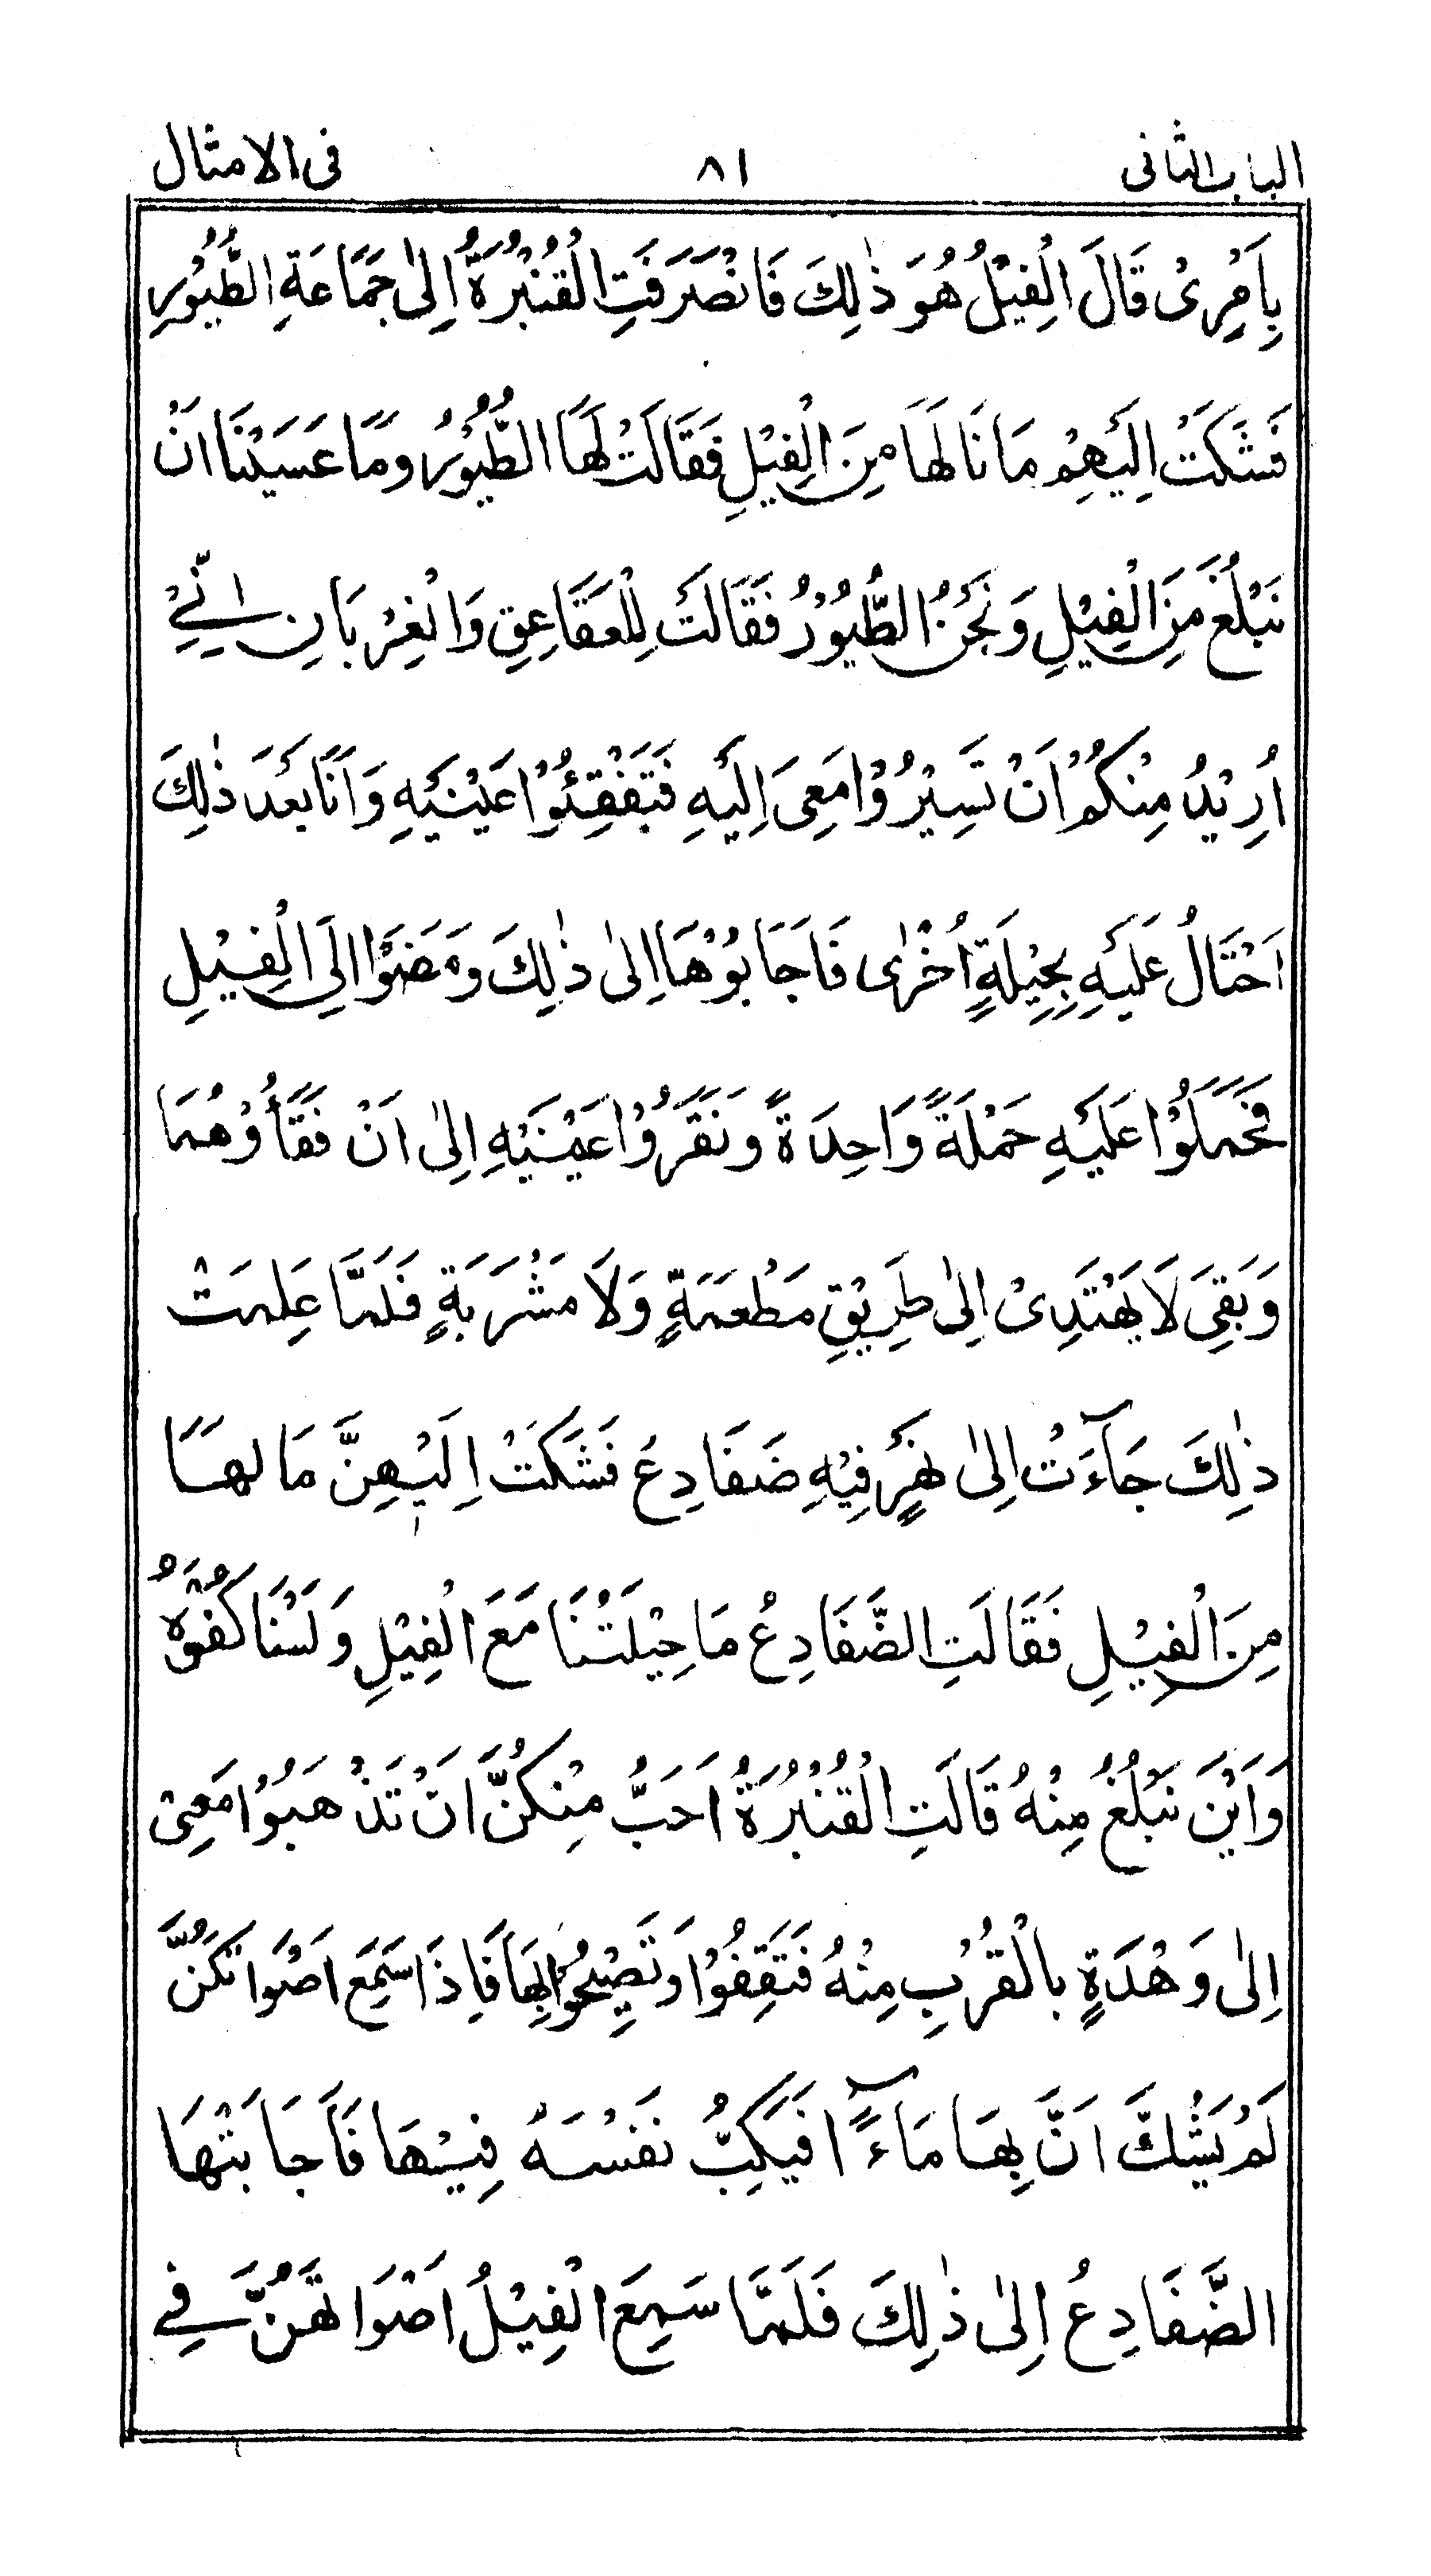 الباب الثانى ٨١ فى الامثال
بِاَمْرِىْ قَالَ الْفِيْلُ هُوَ ذٰلِكَ فَانْصَرَفَتِ الْقُنْبُرَةُ اِلىٰ جَمَاعَةِ الطُّيُوْرِ
فَشَكَتْ اِلَيْهِمْ مَا نَالَهَا مِنَ الْفِيْلِ فَقَالَتْ لَهَا الطُّيُوْرُ وَمَا عَسَيْنَا اَنْ
نَبْلُغَ مِنَ الْفِيْلِ وَنَحْنُ الطُّيُوْرُ فَقَالَتْ لِلْعَقَاعِقِ وَالْغِرْبَانِ اِنِّيْ
اُرِيْدُ مِنْكُمْ اَنْ تَسِيْرُوْا مَعِىَ اِلَيْهِ فَتَفْقِئُوْا عَيْنَيْهِ وَاَنَا بَعْدَ ذٰلِكَ
اَحْتَالُ عَلَيْهِ بِحِيْلَةٍ اُخْرٰى فَاَجَابُوْهَا اِلىٰ ذٰلِكَ وَمَضَوْا اِلَى الْفِيْلِ
فَحَمَلُوْا عَلَيْهِ حَمْلَةً وَاحِدَةً وَنَقَرُوْا عَيْنَيْهِ اِلىٰ اَنْ فَقَأُوْهُمَا
وَبَقِىَ لَا يَهْتَدِىْ اِلىٰ طَرِيْقِ مَطْعَمَةٍ وَلَا مَشْرَبَةٍ فَلَمَّا عَلِمَتْ
ذٰلِكَ جَآءَتْ اِلىٰ نَهْرٍ فِيْهِ ضَفَادِعُ فَشَكَتْ اِلَيْهِنَّ مَا لَهَا
مِنَ الْفِيْلِ فَقَالَتِ الضَّفَادِعُ مَا حِيْلَتُنَا مَعَ الْفِيْلِ وَلَسْنَا كُفُوَهٗ
وَاَيْنَ نَبْلُغُ مِنْهُ قَالَتِ الْقُنْبُرَةُ اَحَبُّ مِنْكُنَّ اَنْ تَذْهَبُوْا مَعِىْ
اِلىٰ وَهْدَةٍ بِالْقُرْبِ مِنْهُ فَتَقِفُوْا وَتَصِيْحُوْا بِهَا فَاِذَا سَمِعَ اَصْوَاتَكُنَّ
لَمْ يَشُكَّ اَنَّ بِهَا مَآءً ا فَيَكِبُّ نَفْسَهٗ فِيْهَا فَاَجَابَتْهَا
الضَّفَادِعُ اِلىٰ ذٰلِكَ فَلَمَّا سَمِعَ الْفِيْلُ اَصْوَاتَهُنَّ فِيْ